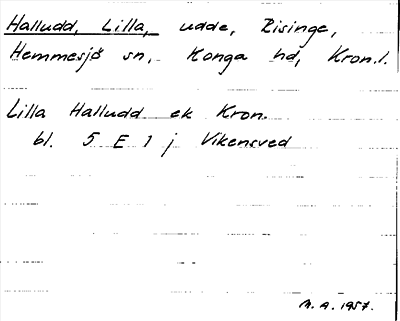 Halludd, Lilla, udde, Risinge,
Hemmesjö sn, Konga hd, Kron.l.
Lilla Halludd ek Kron.
bl. 5 E 1 j Vikensved
M. A. 1957.